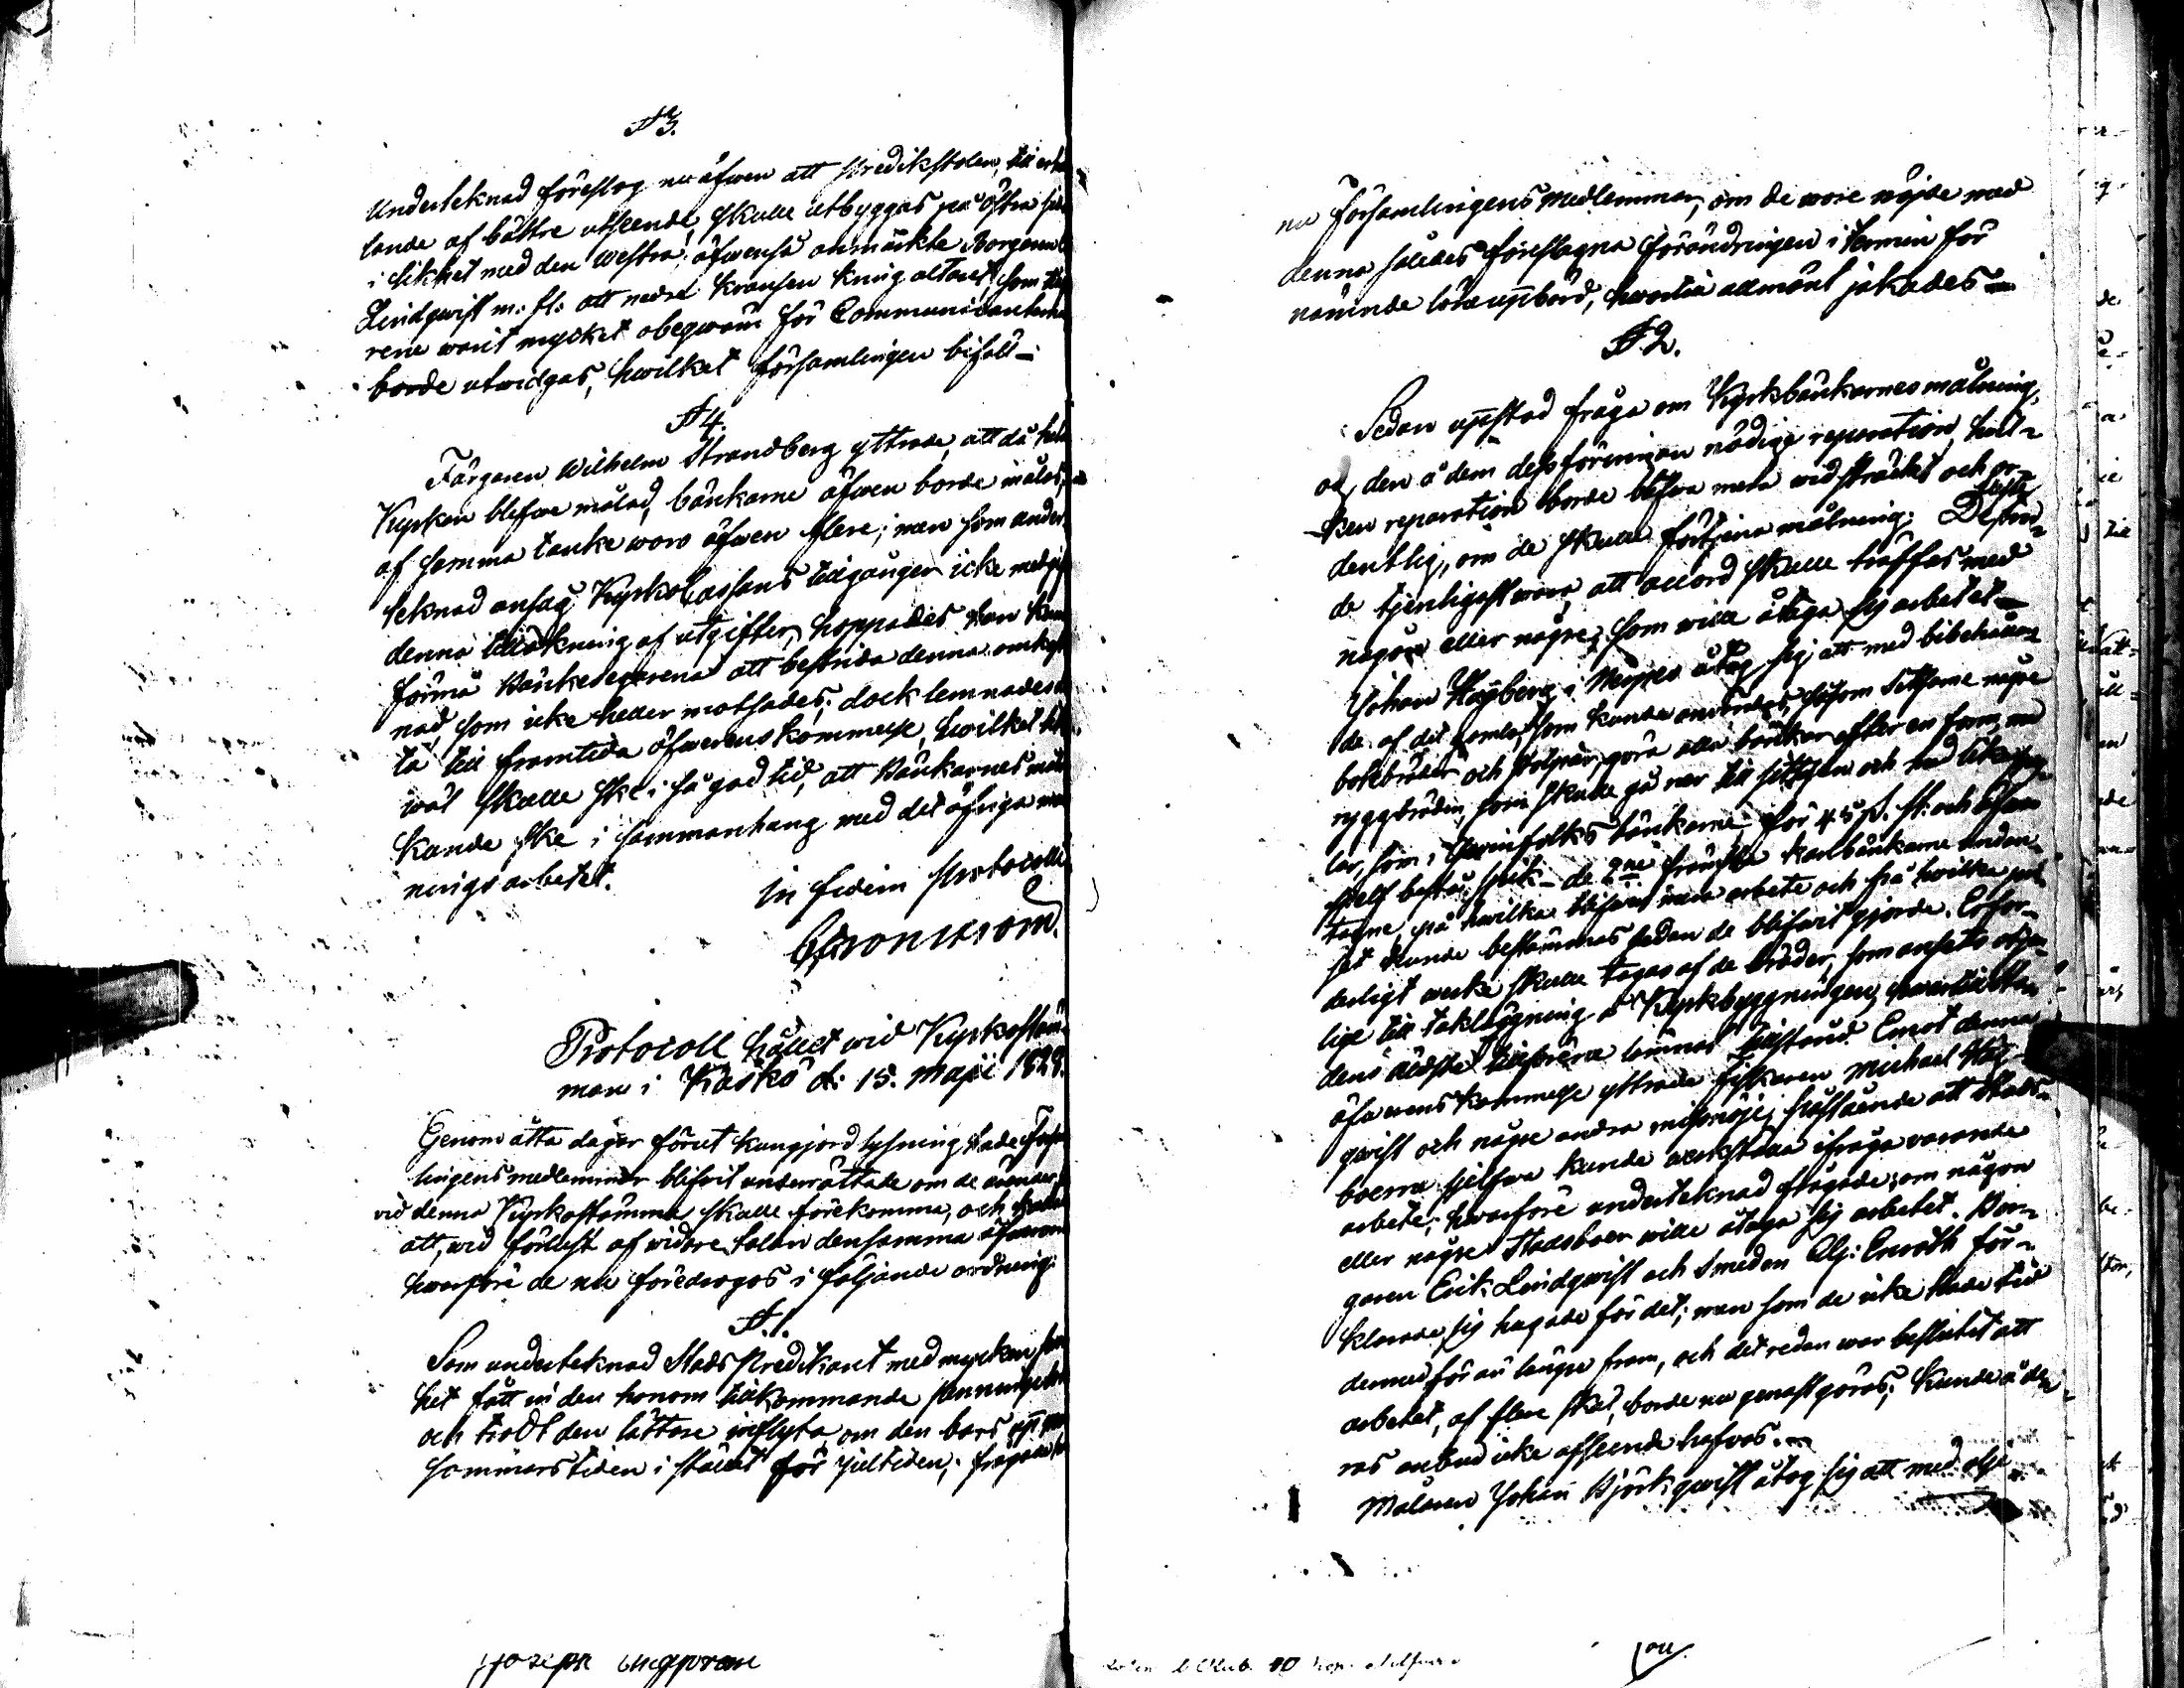 §3.
Undertecknad föreslog nu äfwen att Predikstolen, till
lande af bättre utseende, skulle utbyggas på östra
i likhet med den westra; äfwenså anmärkte Borgaren
Lindqwist m. fl: att nedre kransen kring altaret, som
rene warit mycket obeqwäm för Communicanterna
borde utwidgas, hwilket församlingen biföll –
§4.
Färgaren Wilhelm Strandberg yttrade, att då hela
Kyrkan blefwe målad, bänkarne äfwen borde målas,
af samma tanke woro äfwen flere; men som under
teknad ansåg KyrkoCassans tillgångar icke medgif
denna tillökning af utgifter, hoppades han kun
förmå Bänkedegarena att bestrida denna omkost
nad, som icke heller motsades; dock lemnades
ta till framtida öfwerenskommelse, hwilket
wäl skulle ske i så god tid, att Bänkarnes mål
kunde ske i sammanhang med det öfriga
ningsarbetet.
in fidem Protocolli
Protocoll hållet wid Kyrkostäm
man i Kaskö d: 15. Maji 1828.
Genom åtta dagar förut kungjord lysning hade Försam
lingens medlemmar blifvit underrättade om de ärender,
vid denna Kyrkostämma skulle förekomma, och
att, wid förlust af widare talan densamma
hwarföre de nu föredrogos i följande ordning.
§.1.
Som undertecknad Stads Predikant med mycken
het fått in den honom tillkommande
och trodt den lättare inflyta om den bars up
sommarstiden i stället för Jultiden; frågade
nu församlingens medlemmar, om de wore nöjde med
denna således föreslagna förändringen i termin för
nämnde löneuppbörd, hwartill allmänt jakades –
§2.
Sedan uppstod fråga om Kyrkbänkarnes målning,
och den å dem dessförinnan nödiga reparation, hwil-
ken reparation borde blifwa mera widsträckt och or-
dentlig, om de skulle förtjena målning. Dessli
de tjenligast wara, att accord skulle träffas med
någon eller några, som wille åtaga sig arbetet –
Johan Högberg i Närpes åtog sig att med bibehållan-
de af det gamla, som kunde användas, såsom Sittsarne några
bokbräder och stolpar, göra alla bänkar efter en form, med
ryggbräden, som skulle gå ner till sittsen och med lika
lar, som i Qwinfolks bänkarne för 45 R. St: och
sielf bestå spik – de 2ne främsta karlbänkarne undan-
tagne, på hwilka blifwit mera arbete och på hwilka pri
set kunde bestämmas sedan de blifwit gjorde. Erfor-
derligt wirke skulle tagas af de bräder, som ansetts otjen
lige till takläggning å Kyrkobyggningen, hwartill Sta
dens Äldste tillförene lemnat tillstånd. Emot denna
öfwerenskommelse yttrade fiskaren Michael Hög-
qwist och några andra missnöje, påstående att Stads-
boerne sjelfwa kunde werkställa ifråga warande
arbete; hwarföre undertecknad frågade, om någon
eller några Stadsboer wille åtaga sig arbetet. Bor-
garen Erik Lindqwist och Smeden Elj: Enroth för-
klarade sig hugade för det; men som de icke hade tid
dermed förr än längre fram, och det redan war beslutet att
arbetet, af flere skäl, borde nu genast göras, kunde å de-
ras anbud icke afseende hafwas. –
Målaren Johan Björkqwist åtog sig att med olje